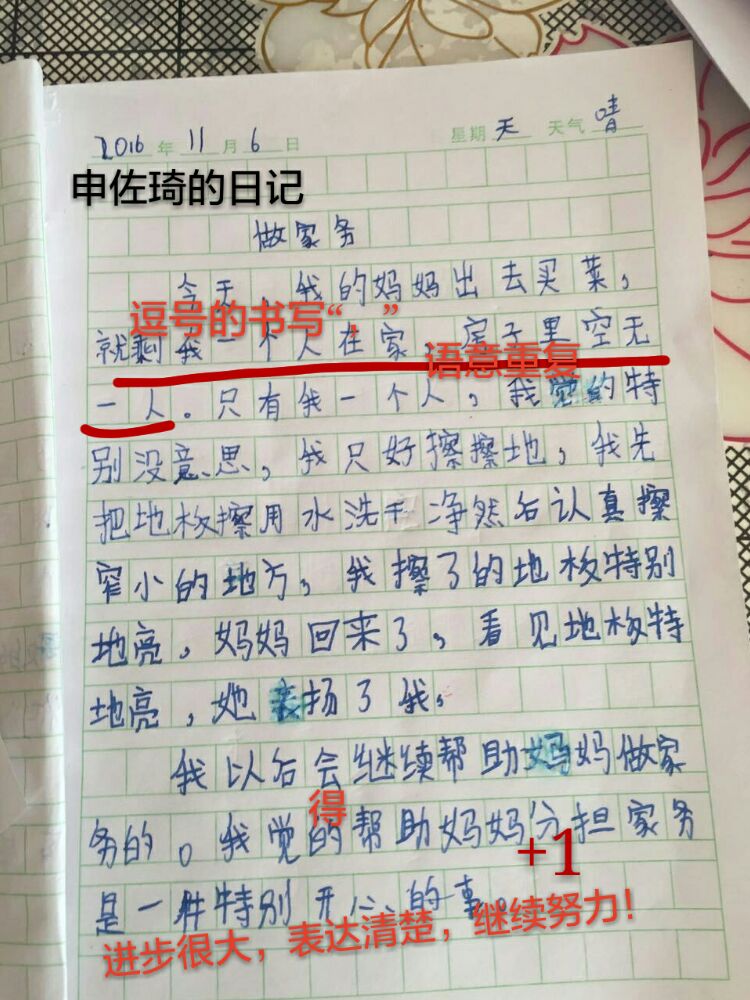 2016年11月6日 星期天 天气晴
申佐琦的日记
做家务
今天，我的妈妈出去买菜，
逗号的书写“，”
就剩我一个人在家，房子里空无
语意重复
一人。只有我一个人，我觉的特
别没意思，我只好擦擦地，我先
把地板擦用水洗干净然后认真擦
窄小的地方，我擦了的地板特别
地亮，妈妈回来了，看见地板特
地亮，她表扬了我，
我以后会继续帮助妈妈做家
得
务的。我觉的帮助妈妈分担家务
+1
是一件特别开心的事。
进步很大，表达清楚，继续努力！